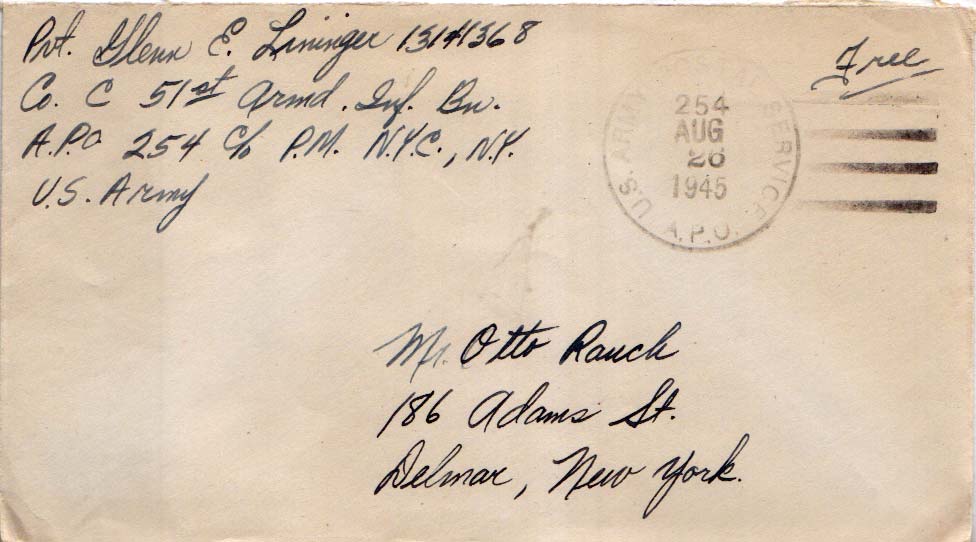 Pvt. Glenn E. Lininger 13141368
Co. C 51st Armd. Inf. Bn.
A.P.O 254 c/o P.M. N.Y.C., N.Y.
U.S. Army
Free
U.S. ARMY POSTAL SERVICE
254
AUG
26
1945
A.P.O.
Mr. Otto Rauch
186 Adams St.
Delmar, New York.